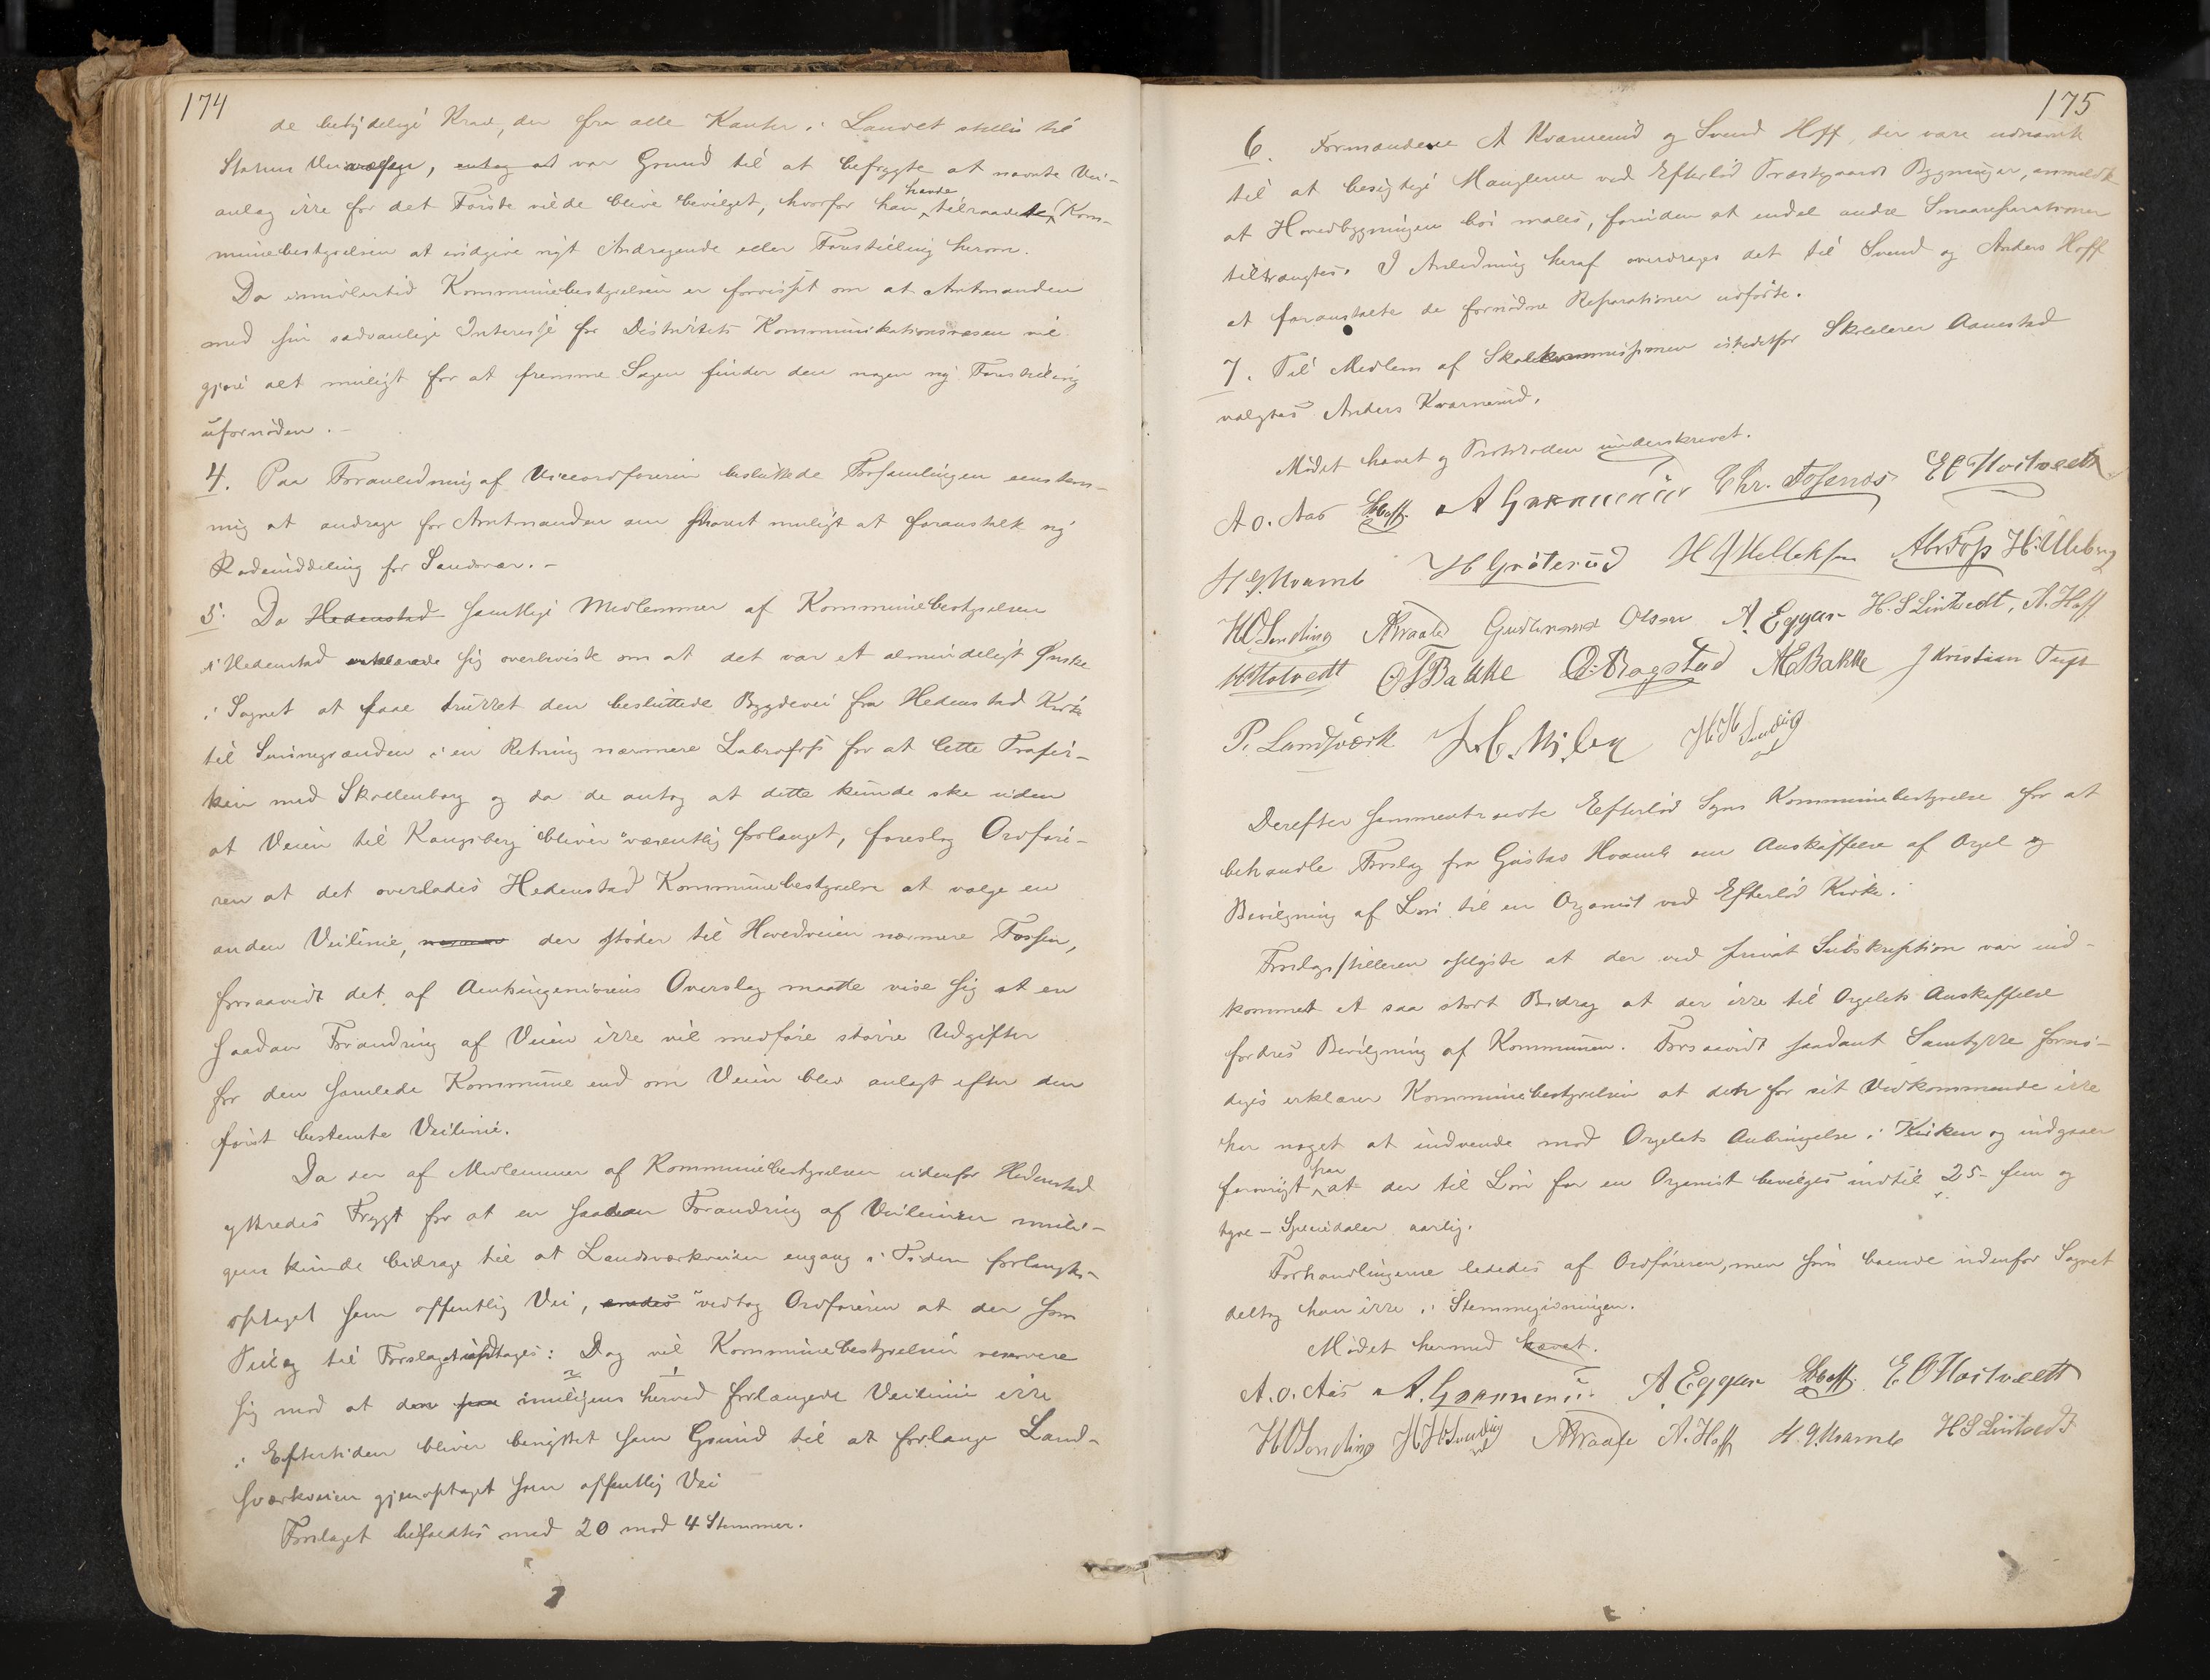 174
de betydelige Krav, der fra alle Kanter i Landet stilles til
Statens Veivæsen, antog at var Grund til at befrygte at nævnte Vei-
anlæg ikke for det Første vilde blive bevilget, hvorfor han havde tilraadet Kom-
munebestyrelsen at indgive nyt Andragende eller Forestilling herom.
Da imidlertid Kommunebestyrelsen er forvisset om at Amtmanden
med sin sædvanlige Interesse for Distriktets Kommunikationsvæsen vil
gjøre alt muligt for at fremme Sagen finder den nogen ny Forestilling
ufornøden.-
4. Paa Foranledning af Viceordføreren besluttede Forsamlingen eenstem-
mig at andrage for Amtmanden om snarest muligt at foranstalte ny
Rodeinddeling for Sandsvær.-
5. Da Hedenstad samtlige Medlemmer af Kommunebestyrelsen
i Hedenstad erklærede sig overbeviste om at det var et almindeligt Ønske
i Sognet at faae trukket den besluttede Bygdevei fra Hedenstad Kirke
til i en Retning nærmere Labrofoss for at lette Trafik-
ken med Skollenborg og da de antog at dette kunde ske uden
at Veien til Kongsberg bliver væsentlig forlænget, foreslog Ordføre-
ren at det overlades Hedenstad Kommunebestyrelse at vælge en
anden Veilinie, der støder til Hovedveien nærmere Fossen,
forsaavidt det af Amtsingeniørens Overslag maatte vise sig at en
saadan Forandring af Veien ikke vil medføre større Udgifter
for den samlede Kommune end om Veien blev anlagt efter den
først bestemte Veilinie.
Da der af Medlemmer af Kommunebestyrelsen udenfor Hedenstad
yttredes Frygt for at en saadan Forandring af Veilinien muli-
gens kunde bidrage til at Landsværkveien engang i Tiden forlangtes
optaget som offentlig Vei, vedtog Ordføreren at der som
Tillæg til Forslaget optages: Dog vil Kommunebestyrelsen reservere
sig mod at den muligens herved forlængede Veilinie ikke
i Eftertiden bliver benyttet som Grund til at forlange Land-
sværkveien gjenoptaget som offentlig Vei
Forslaget bifaldtes med 20 mod 4 Stemmer.
175
6. Formændene A Kværnerud og Svend Hoff, der vare udnævnte
til at besigtige Manglerne ved Efteløt Præstegaards Bygninger, anmeldte
at Hovedbygningen bør males, foruden at endel andre Smaareparationer
tiltrængtes. I Anledning heraf overdrages det til Svend og Anders Hoff
at foranstalte de fornødne Reparationer udførte.
7. Til Medlem af Skolekommissionen istedetfor Skolelærer Aanestad
valgtes Anders Kværnerud.
Mødet hævet og Protokollen underskrevet.
A. O. Aas SHoff. A Chr. Fossnes E O Hostvedt
H G Hvamb H Grøterud H Abr Foss H. Ulleberg
HOSending Gudbrand Olsen A. Eggar H. S Lintvedt, A. Hoff
OTBakke AEBakke J Kristian Tuft
P. Landsværk
Derefter sammentraadte Efteløt Sogns Kommunebestyrelse for at
behandle Forslag fra Gustav Hvamb om Anskaffelse af Orgel og
Bevilgning af Løn til en Organist ved Efteløt Kirke.
Forslagsstilleren oplyste at der ved privat Subskription var ind-
kommet et saa stort Bidrag at der ikke til Orgelets Anskaffelse
fordres Bevilgning af Kommunen. Forsaavidt saadant Samtykke fornø-
diges erklærer Kommunebestyrelsen at den for sit Vedkommende ikke
har noget at indvende mod Orgelets Anbringelse i Kirken og indgaaer
forøvrigt paa at der til Løn for en Organist bevilges indtil 25 - fem og
tyve - Speciedaler aarlig.
Forhandlingerne lededes af Ordføreren, men som boende udenfor Sognet
deltog han ikke i Stemmegivningen.
Mødet hermed hævet.
A. O. Aas A. A. Eggar SHoff. E. O Hostvedt
HOSending A. Hoff H. G. Hvamb H S Lintvedt